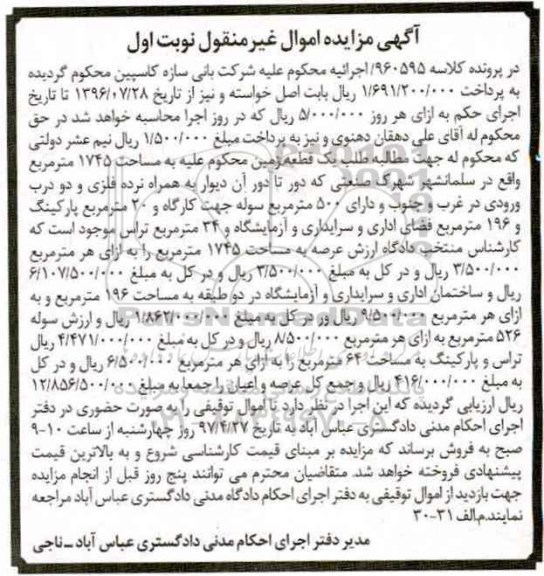 آگهی مزایده اموال غیرمنقول نوبت اول
در پرونده کلاسه ۹۶۰۵۹۵/اجرائیه محکوم علیه شرکت بانی سازه کاسپین محکوم گردیده
به پرداخت ۱/۶۹۱/۲۰۰/۰۰۰ ریال بابت اصل خواسته و نیز از تاریخ ۱۳۹۶/۰۷/۲۸ تا تاریخ
اجرای حکم به ازای هر روز ۵/۰۰۰/۰۰۰ ریال که در روز اجرا محاسبه خواهد شد در حق
محکوم له آقای علی دهقان دهنوی و نیز به پرداخت مبلغ ۱/۵۰۰/۰۰۰ ریال نیم عشر دولتی
که محکوم له جهت مطالبه طلب یک قطعه زمین محکوم علیه به مساحت ۱۷۴۵ مترمربع
واقع در سلمانشهر شهرک صنعتی که دور تا دور آن دیوار به همراه نرده فلزی و دو درب
ورودی در غرب و جنوب و دارای ۵۰۰ مترمربع سوله جهت کارگاه و ۲۰ مترمربع پارکینگ
و ۱۹۶ مترمربع فضای اداری و سرایداری و آزمایشگاه و ۳۴ مترمربع تراس موجود است که
کارشناس منتخب دادگاه ارزش عرصه به مساحت ۱۷۴۵ مترمربع را به ازای هر مترمربع
۳/۵۰۰/۰۰۰ ریال و در کل به مبلغ ۳/۵۰۰/۰۰۰ ریال و در کل به مبلغ ۶/۱۰۷/۵۰۰/۰۰۰
ریال و ساختمان اداری و سرایداری و آزمایشگاه در دو طبقه به مساحت ۱۹۶ مترمربع و به
ازای هر مترمربع ۹/۵۰۰/۰۰۰ ریال و در کل به مبلغ ۱/۸۶۲/۰۰۰/۰۰۰ ریال و ارزش سوله
۵۲۶ مترمربع به ازای هر مترمربع ۸/۵۰۰/۰۰۰ ریال و در کل به مبلغ ۴/۴۷۱/۰۰۰/۰۰۰ ریال
تراس و پارکینگ به مساحت ۶۴ مترمربع را به ازای هر مترمربع ۶/۵۰۰/۰۰۰ ریال و در کل
به مبلغ ۴۱۶/۰۰۰/۰۰۰ ریال و جمع کل عرصه و اعیان را جمعا به مبلغ ۱۲/۸۵۶/۵۰۰/۰۰۰
ریال ارزیابی گردیده که این اجرا در نظر دارد تا اموال توقیفی را به صورت حضوری در دفتر
اجرای احکام مدنی دادگستری عباس آباد به تاریخ ۹۷/۴/۲۷ روز چهارشنبه از ساعت ۱۰-۹
صبح به فروش برساند که مزایده بر مبنای قیمت کارشناسی شروع و به بالاترین قیمت
پیشنهادی فروخته خواهد شد. متقاضیان محترم می توانند پنج روز قبل از انجام مزایده
جهت بازدید از اموال توقیفی به دفتر اجرای احکام دادگاه مدنی دادگستری عباس آباد مراجعه
نمایند.م.الف ۳۱-۳۰
مدیر دفتر اجرای احکام مدنی دادگستری عباس آباد ـ ناجی
ParsNamadData